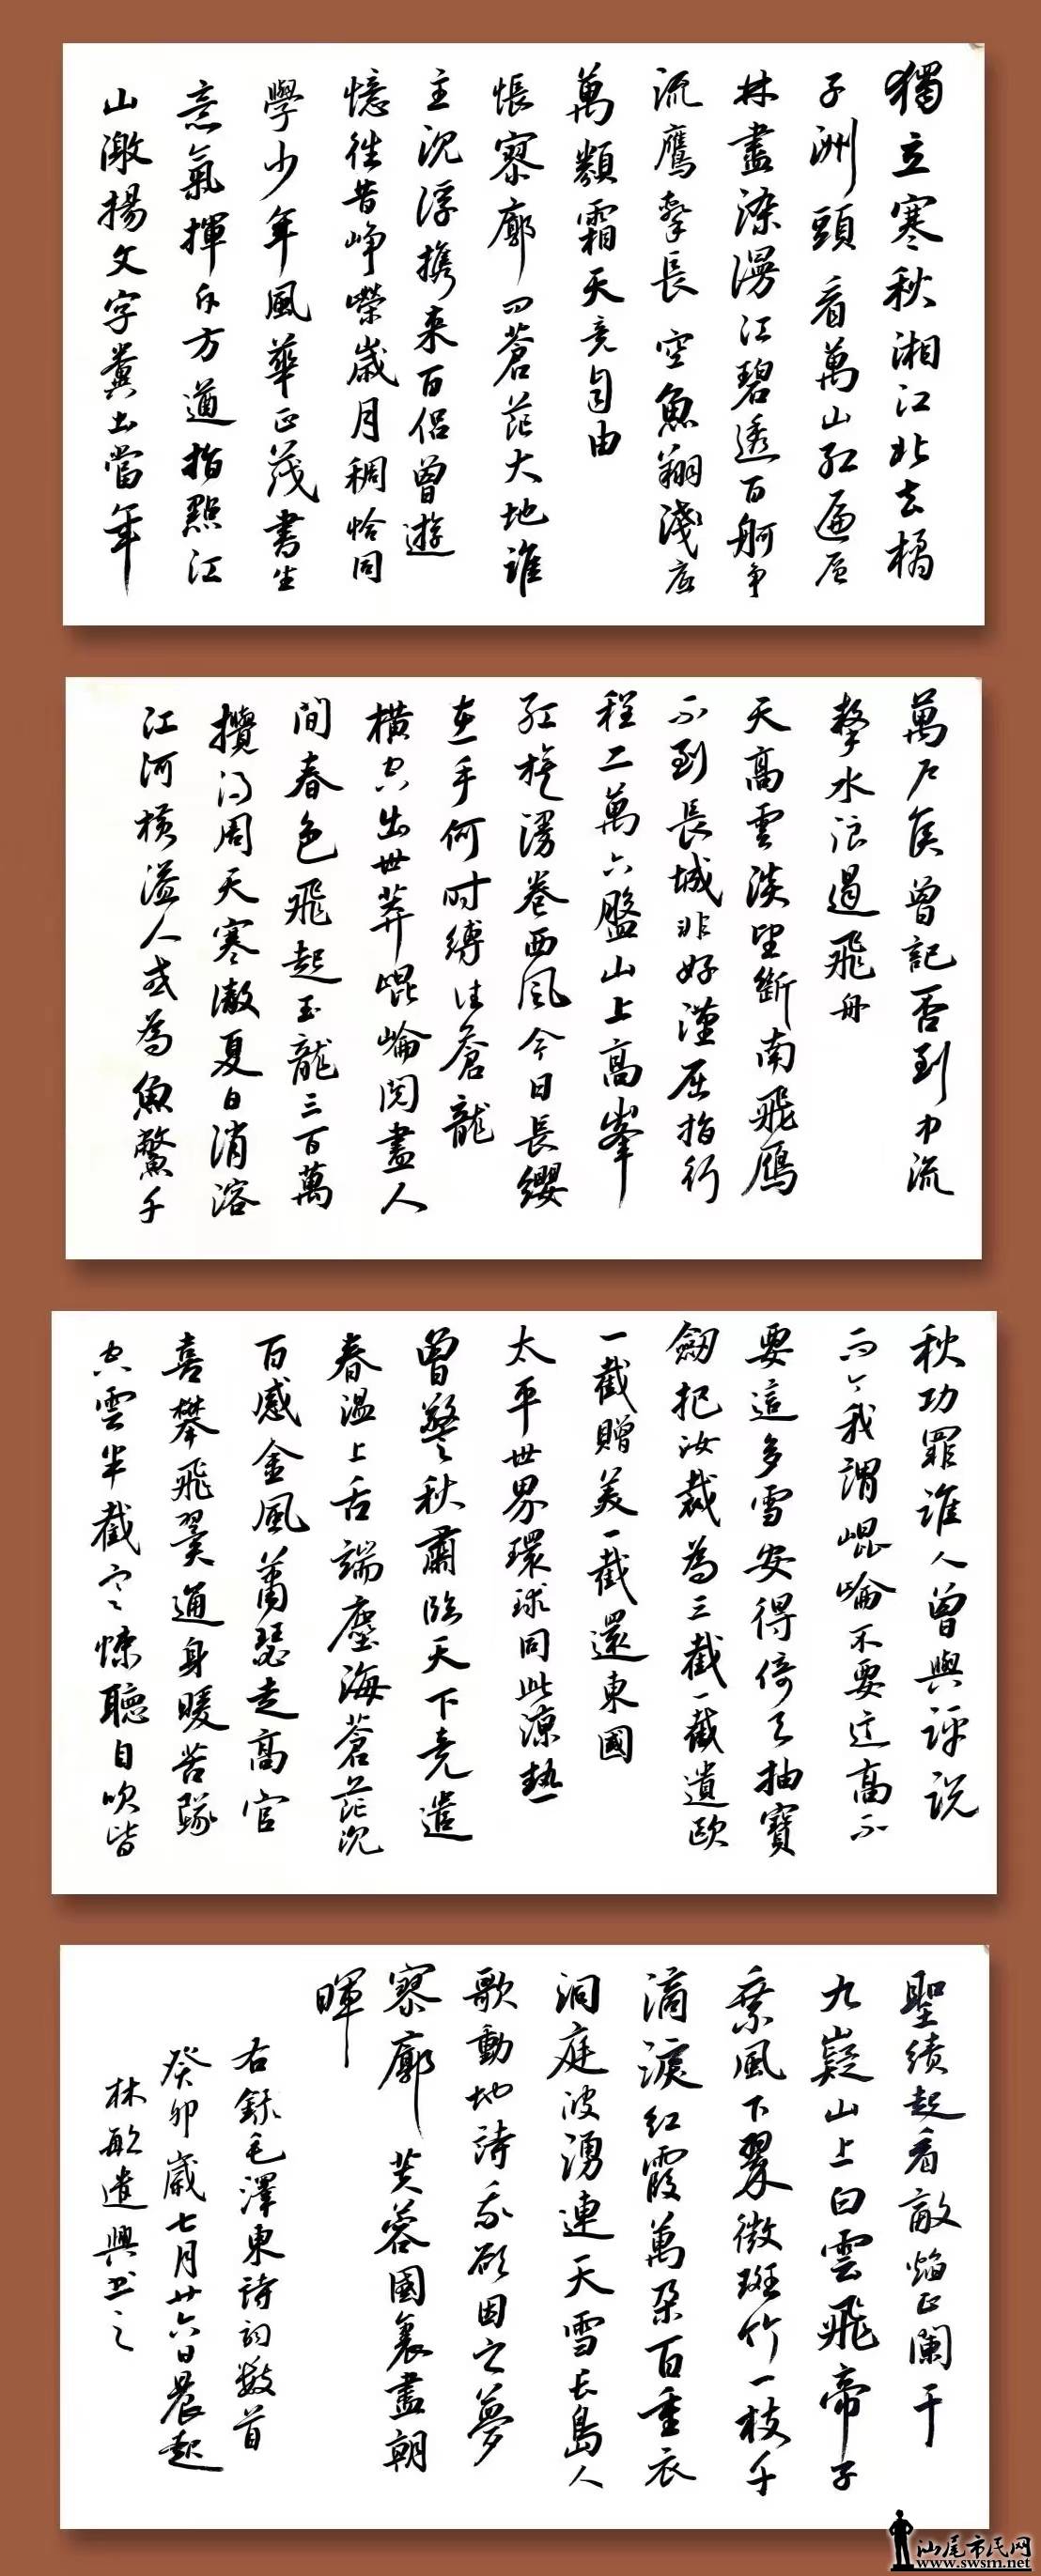 獨立寒秋湘江北去橘
子洲頭看萬山紅遍层
林盡染漫江碧透百舸争
流鷹擊長空魚翔淺底
萬類霜天竞自由
悵寥廓问蒼茫大地誰
主沉浮携来百侣曾遊
憶往昔峥嶸嵗月稠恰同
學少年風華正茂書生
意氣揮斥方遒指點江
山激揚文字糞土當年
萬户侯曾記否到中流
擊水浪遏飛舟
天高雲淡望斷南飛雁
不到長城非好漢屈指行
程二萬六盤山上高峯
紅旗漫卷西風今日長纓
在手何时縛住蒼龍
横空出世莽崐崘阅盡人
間春色飛起玉龍三百萬
攪得周天寒澈夏日消溶
江河横溢人或為魚鱉千
秋功罪誰人曾與評説
而今我謂崐崘不要这高不
要這多雪安得倚天抽寶
劔把汝裁為三截一截遺歐
一截贈美一截還東國
太平世界環球同此凉熱
曾驚秋肅临天下竞遣
春温上舌端塵海蒼茫沉
百感金風蕭瑟走高官
喜攀飛翼通身暖苦墜
空雲半截寒悚聽自吹皆
聖績起看敵焰正闌干
九嶷山上白雲飛帝子
乘風下翠微斑竹一枝千
滴淚紅霞萬朵百重衣
洞庭波湧連天雪長島人
歌動地詩我欲因之夢
寥廓芙蓉國裏盡朝
暉
右録毛澤東詩詞數首
癸卯嵗七月廿六日晨起
林敏遣興书之
汕尾市民网
www.swsm.net